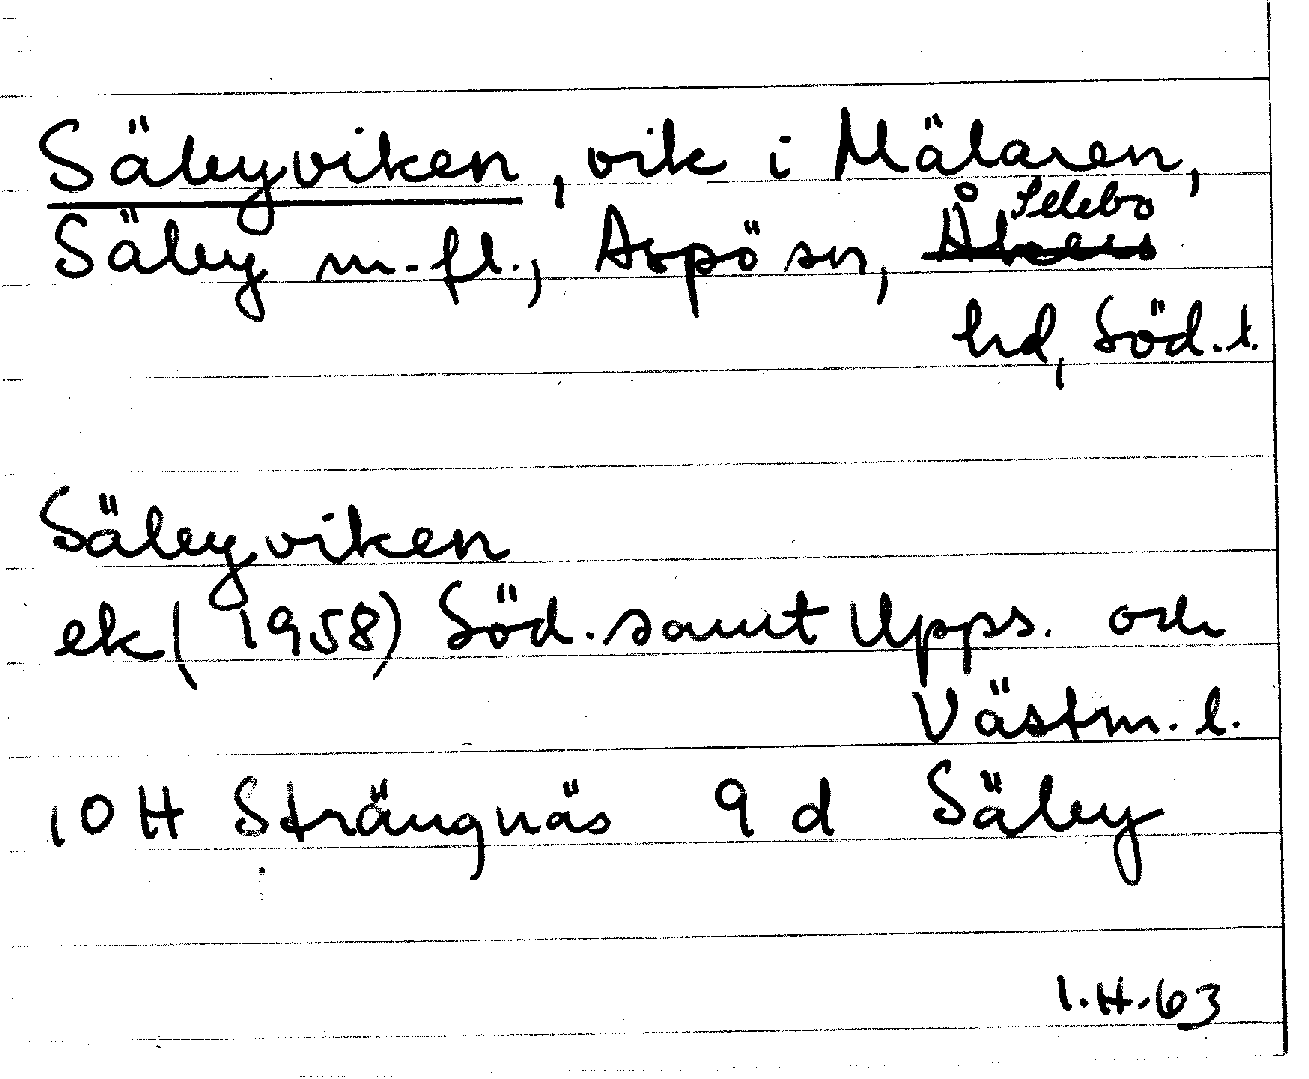 Säbyviken, vik i Mälaren,
Säby m. fl., Aspö sn, Selebo
hd, Söd. l.
Säbyviken
ek (1958) Söd. samt Upps. och
Västm. l.
10 H Strängnäs 9 d Säby
I.H.63